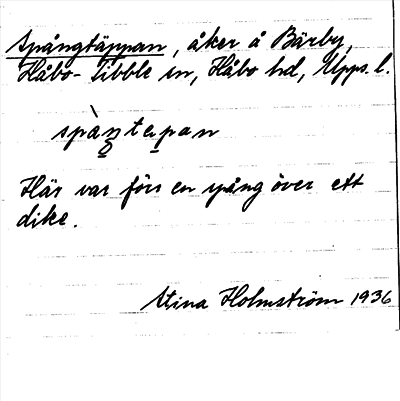 Spångtäppan, åker å Bärby,
Håbo-Tibble sn, Håbo hd, Upps. l.
spàntepan
Här var förr en spång över ett
dike.
Stina Holmström 1936